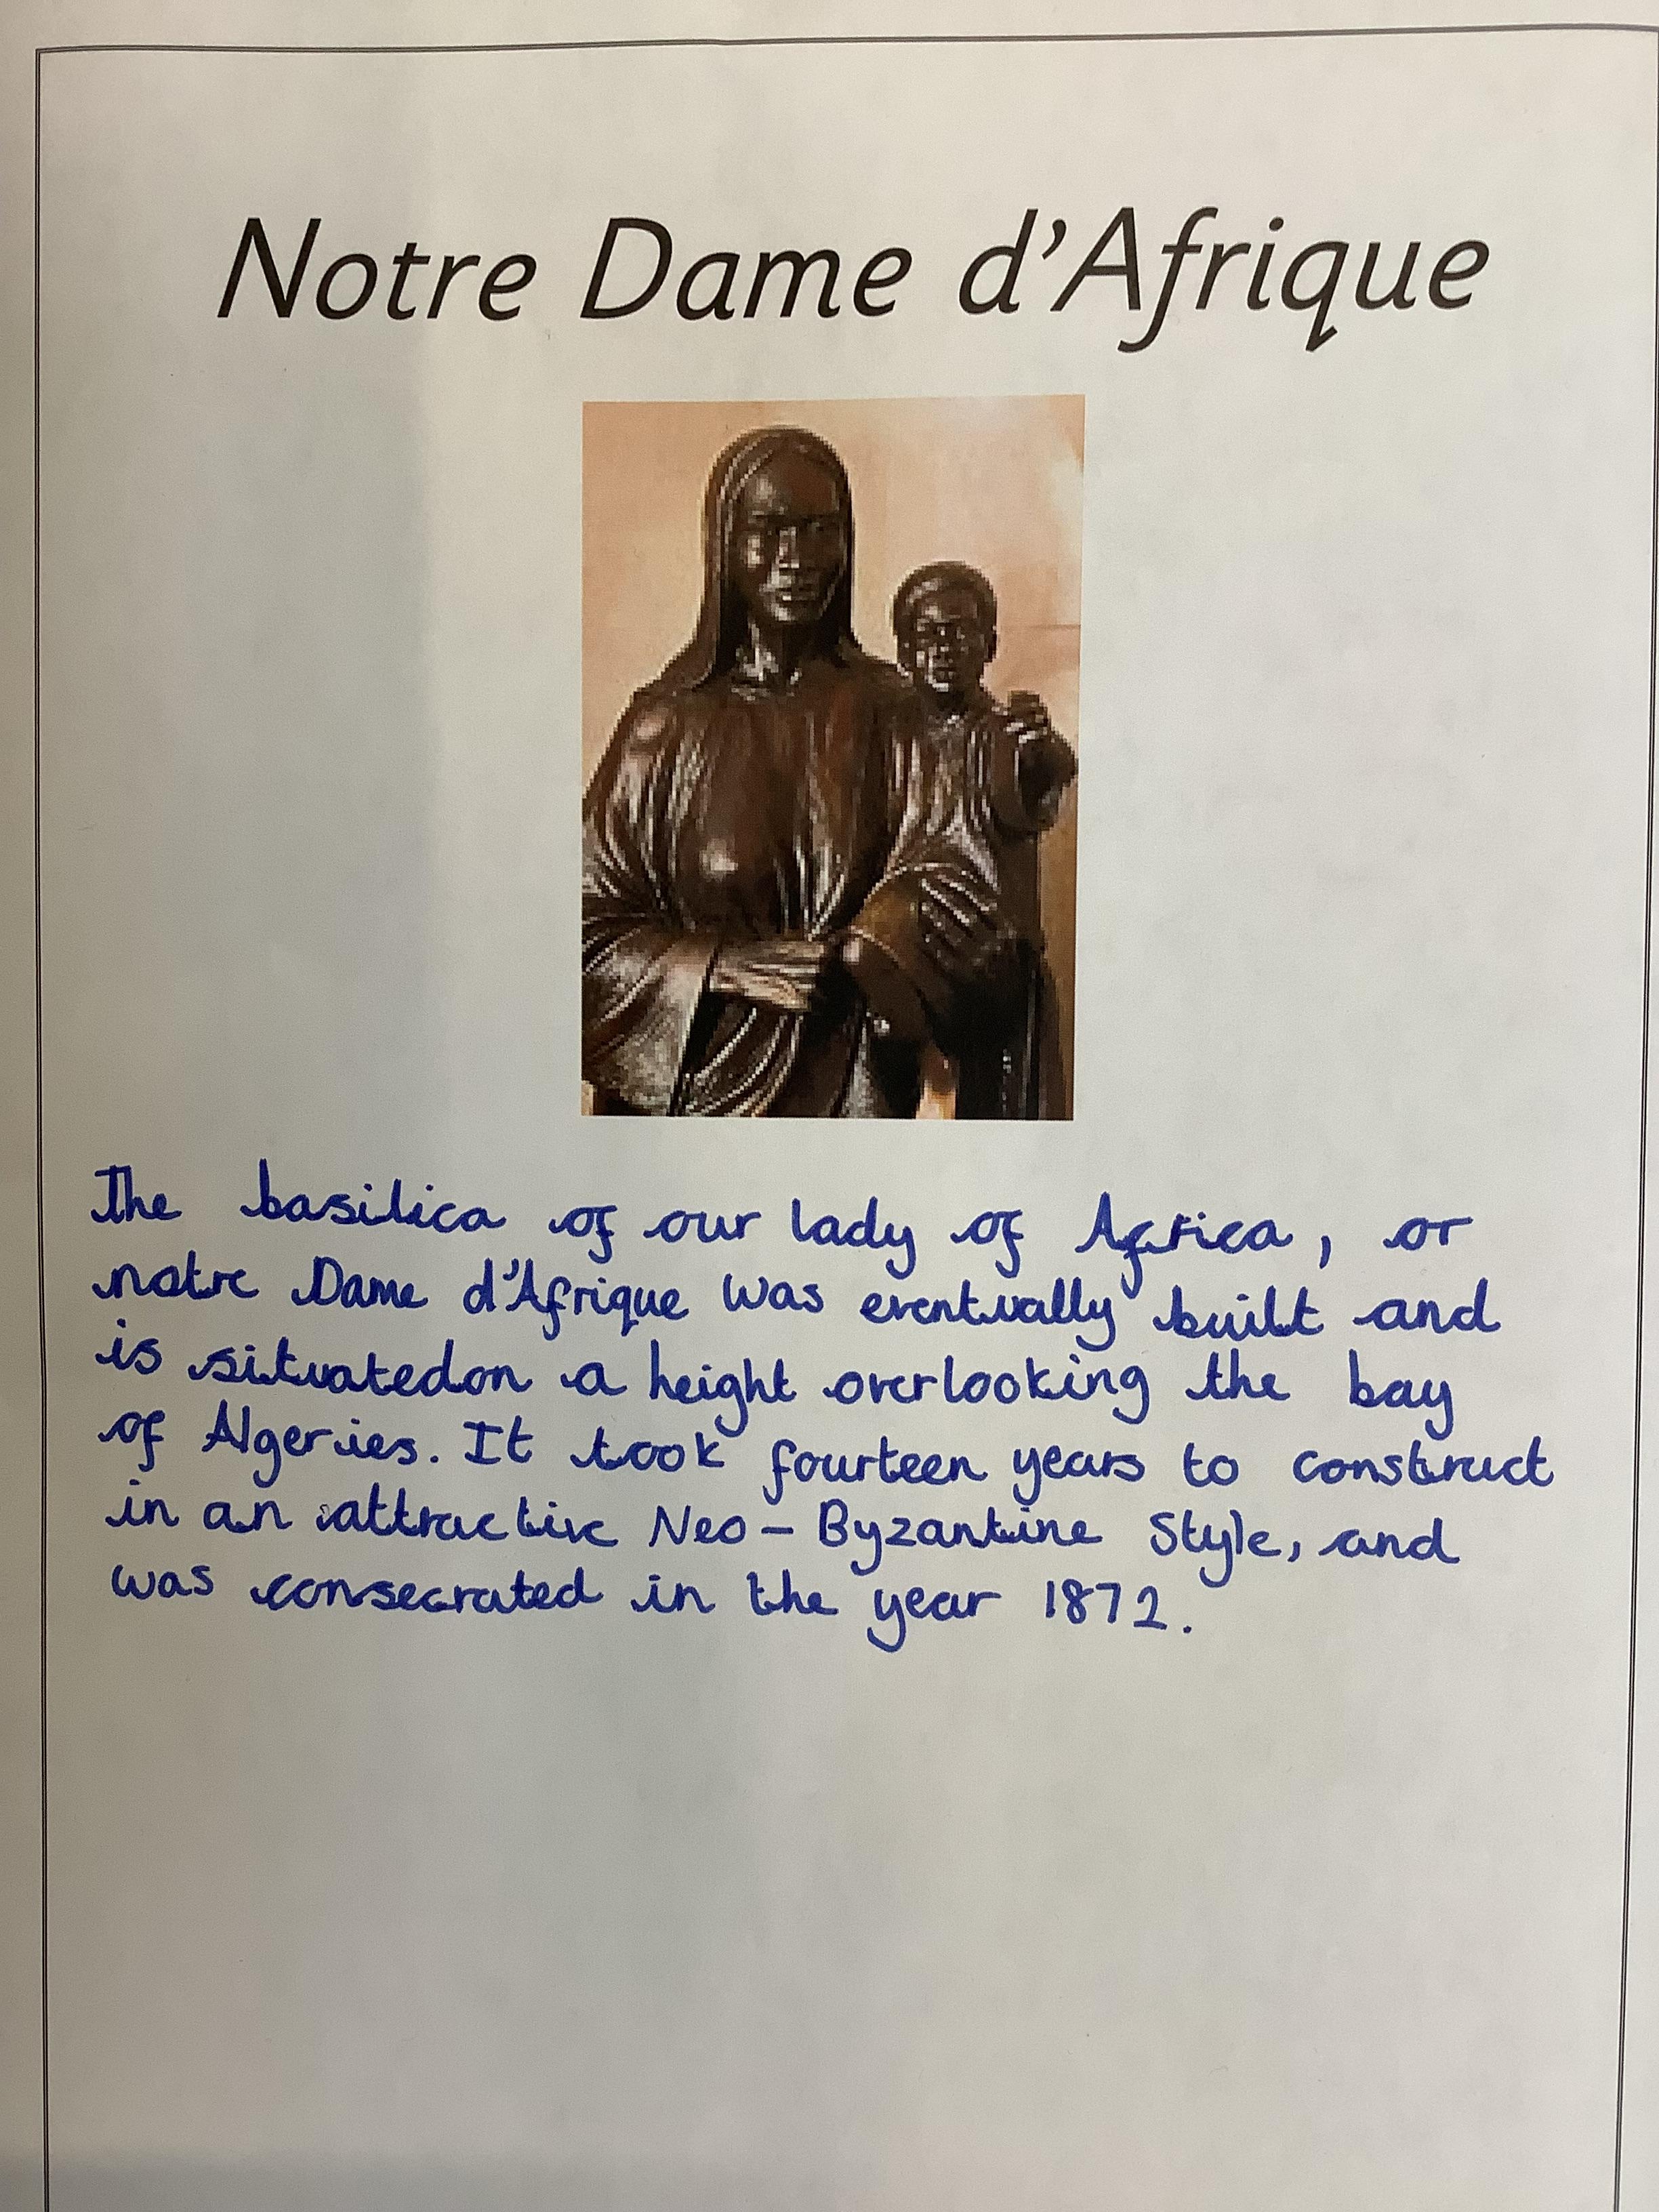 Notre Dame d'Afrique
The basilica of our lady of Africa, or
notre Dame d'Afrique was eventually built and
is situatedon a height overlooking the bay
of Algeries. It took fourteen years to construct
in an attractive Neo-Byzantine Style, and
was consecrated in the year 1872.